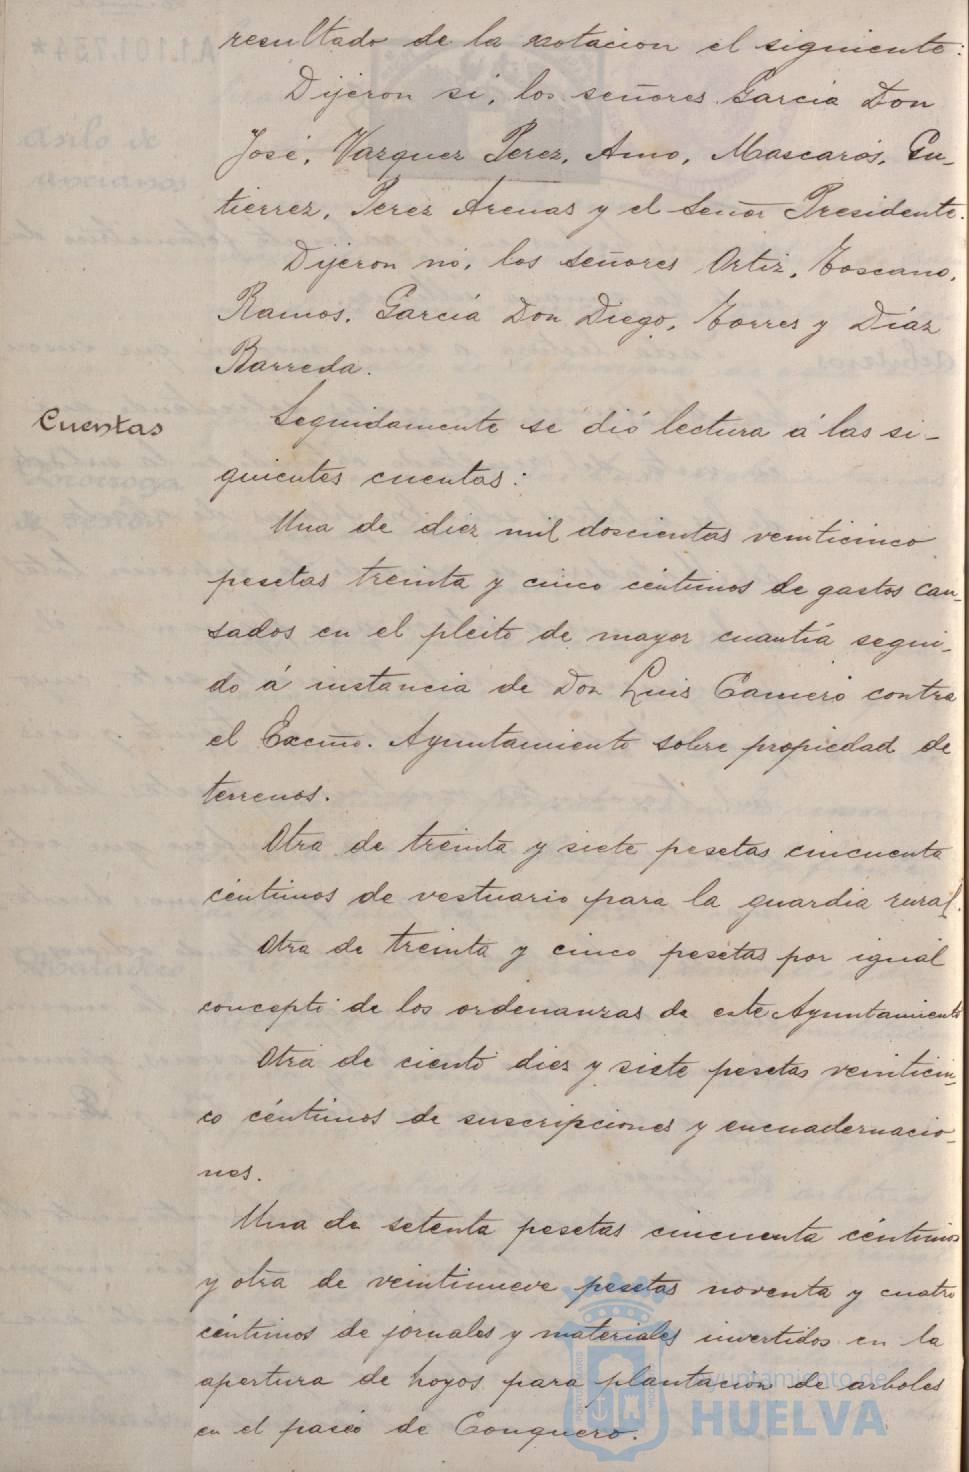 resultado de la votacion el siguiente:
Dijeron si, los señores Garcia Don
José, Vazquez Perez, Amo, Mascarós, Gu-
tierrez, Perez Arenas y el Señor Presidente.
Dijeron nó, los señores Ortiz, Toscano,
Ramos, García Don Diego, Torres y Díaz
Barreda.
Cuentas
Seguidamente se dió lectura á las si-
guientes cuentas:
Una de diez mil doscientas veinticinco
pesetas treinta y cinco céntimos de gastos cau-
sados en el pleito de mayor cuantía segui-
do á instancia de Don Luis Camero contra
el Excmo. Ayuntamiento sobre propiedad de
terrenos.
Otra de treinta y siete pesetas cincuenta
céntimos de vestuario para la guardia rural.
Otra de treinta y cinco pesetas por igual
concepto de los ordenanzas de este Ayuntamiento
Otra de ciento diez y siete pesetas veinticin-
co céntimos de suscripciones y encuadernacio-
nes.
Una de setenta pesetas cincuenta céntimos
y otra de veintinueve pesetas noventa y cuatro
céntimos de jornales y materiales invertidos en la
apertura de hoyos para plantacion de arboles
en el paseo de Conquero.
Ayuntamiento de
HUELVA